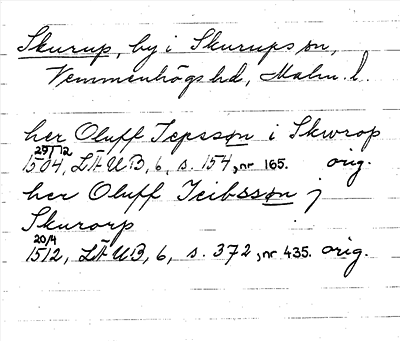 Skurup, by i Skurups sn,
Vemmenhögs hd, Malm. l.
her Oluff Jepsson i Skwrop
29/12
1504, LÄUB, 6, s. 154, nr 165. orig.
her Oluff Jeibsson j
Skurorp
20/4
1512, LÄUB, 6, s. 372, nr 435. orig.